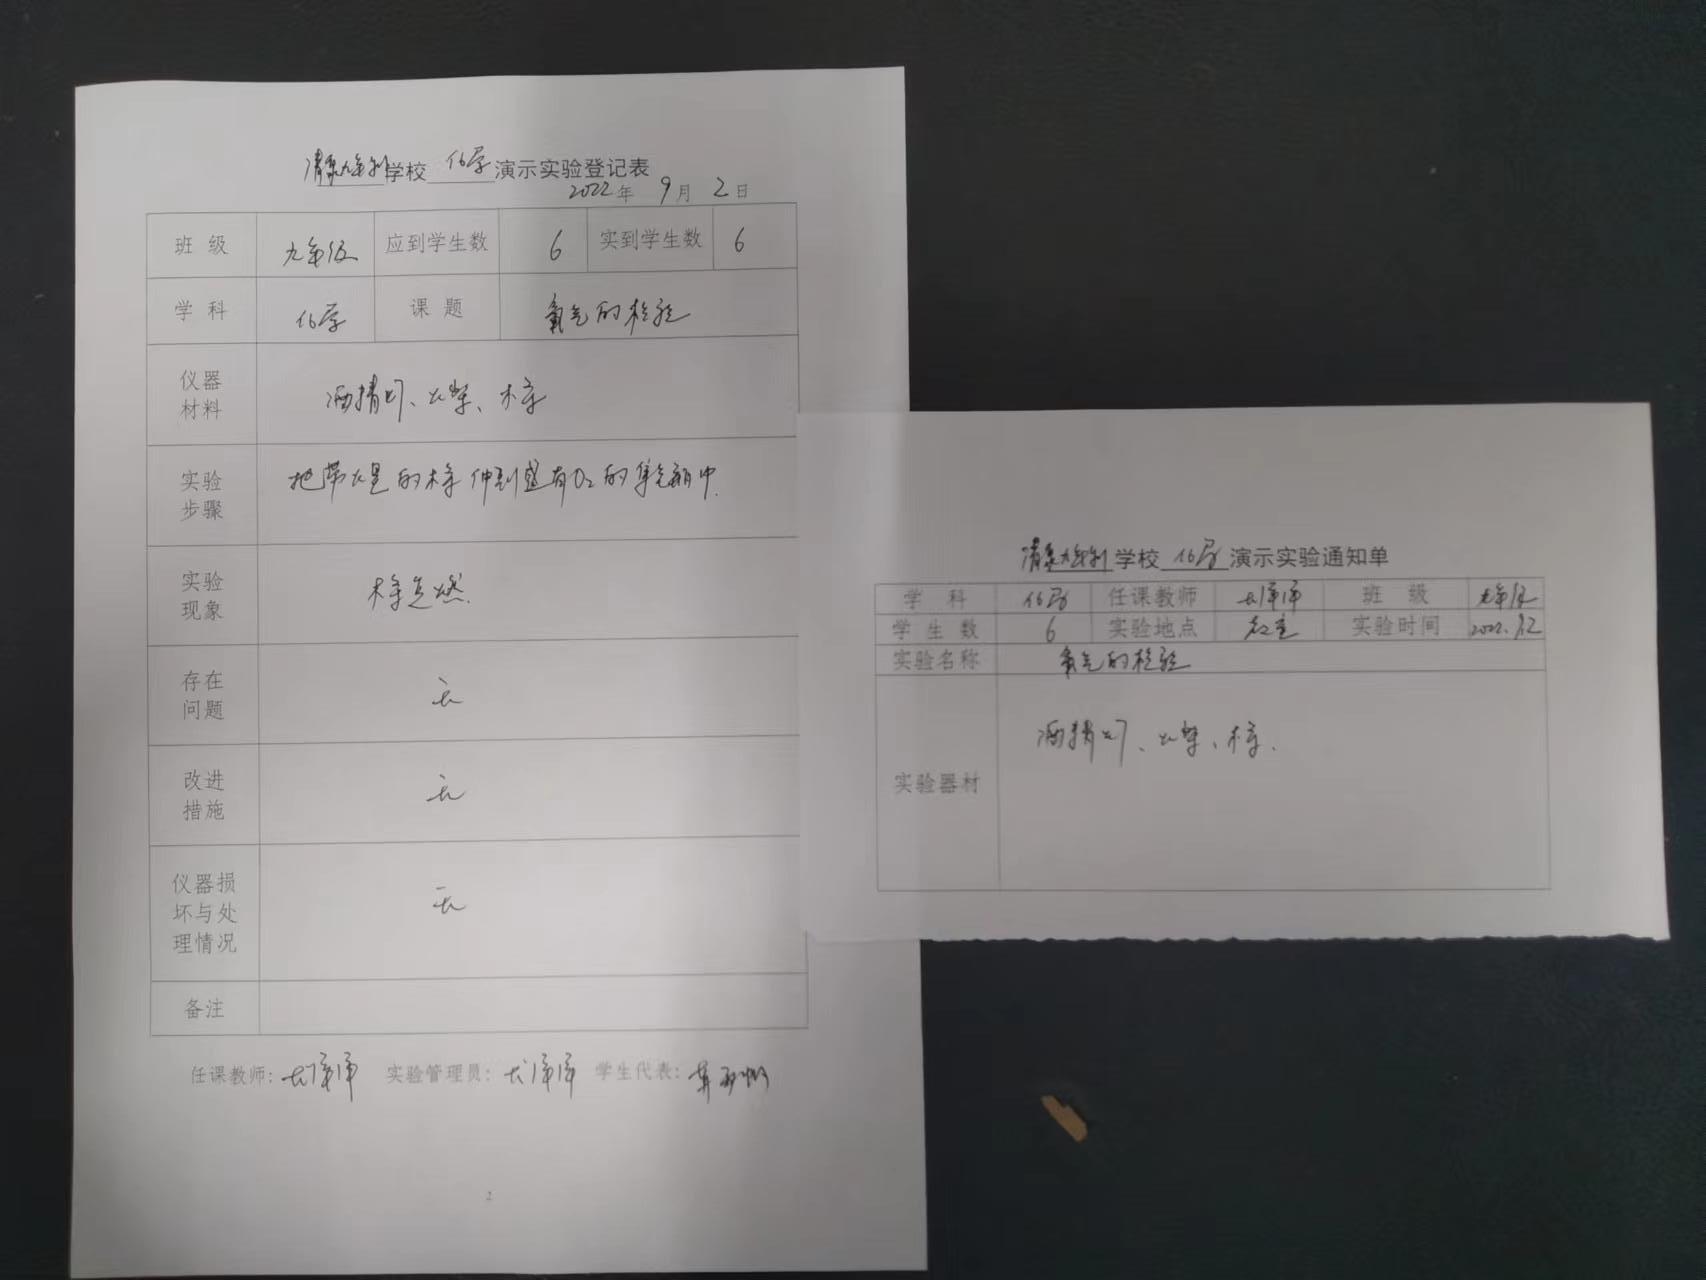 清泉九年制学校 化学 演示实验登记表
2022年 9月 2日
班 级 九年级 应到学生数 6 实到学生数 6
学 科 化学 课 题 氧气的检验
仪器材料 酒精灯、火柴、木条
实验步骤 把带火星的木条伸到盛有O₂的集气瓶中.
实验现象 木条复燃.
存在问题 无
改进措施 无
仪器损坏与处理情况 无
备注
任课教师: 实验管理员: 学生代表:
2
清泉九年制学校 化学 演示实验通知单
学 科 化学 任课教师 班 级 九年级
学 生 数 6 实验地点 教室 实验时间 2022.9.2
实验名称 氧气的检验
实验器材 酒精灯、火柴、木条.